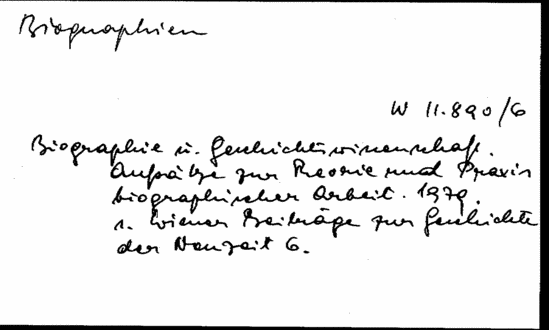 Biographien
W 11.890/6
Biographie u. Geschichtswissenschaft.
Aufsätze zur Theorie und Praxis
biographischer Arbeit. 1979.
s. Wiener Beiträge zur Geschichte
der Neuzeit 6.